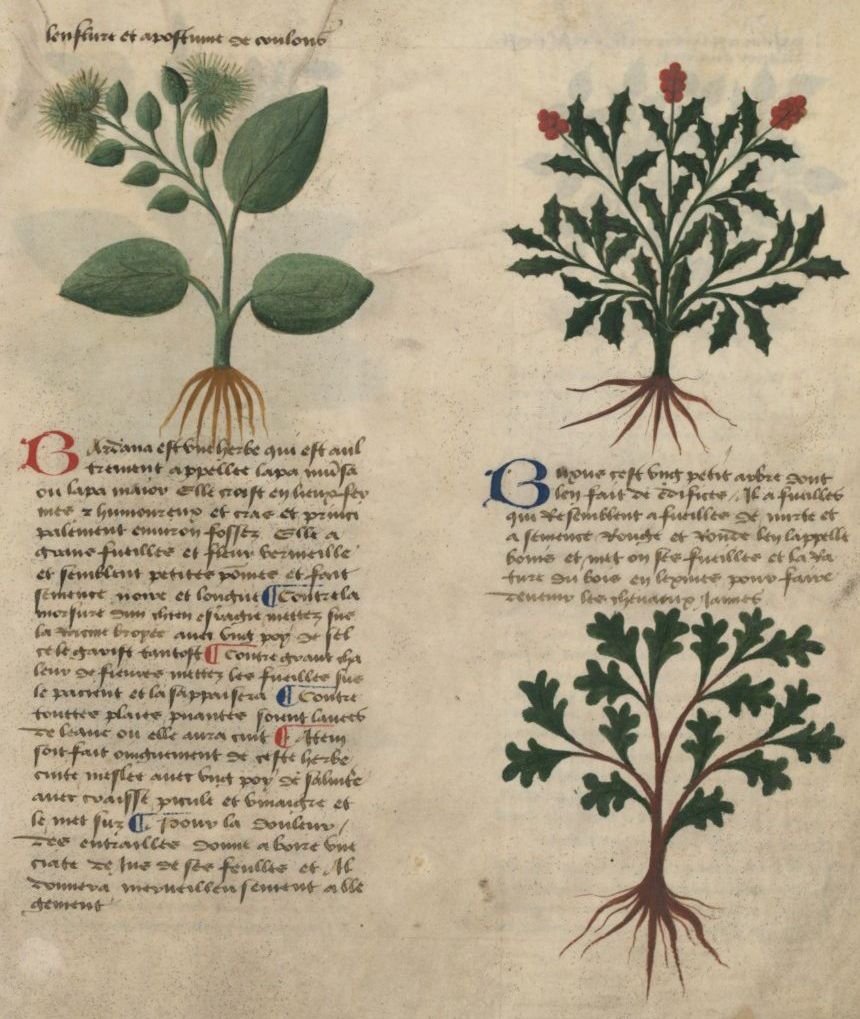 lenflure et apostume de coulons
Bardana est une herbe qui est aul
trement appellee lapa
ou lapa maior Elle croist en lieux
et humoureux et cras et princi
palement environ fossez Elle a
grans fueilles et fleur vermeille
et semblent petites pōmes et fait
semence noire et longue ¶ Contre la
morsure dun chien esragie mettez sus
la racine broyee avec ung poy de sel
ce le garist tantost ¶ Contre grant cha
leur de fievres mettez les fueilles sus
le pacient et la sappaisera ¶ Contre
touttes plaies puantes soient lavees
de leaue ou elle aura cuit ¶ Item
soit fait oingnement de ceste herbe
cuite meslee avec ung poy de
avec craisse et vinaigre et
le met sus ¶ Pour la douleur
des entrailles donne a boire une
ciate de jus de ses feulles et Il
donnera merveilleusement alle
gement
Buxus cest ung petit arbre dont
len fait de edifices Il a fueilles
qui Resemblent a fueilles de mirte et
a semence Rouge et Ronde len lappelle
bouis et met on ses fueilles et la Ra
ture du bois en lexives pour faire
devenir les cheveaux Jaunes